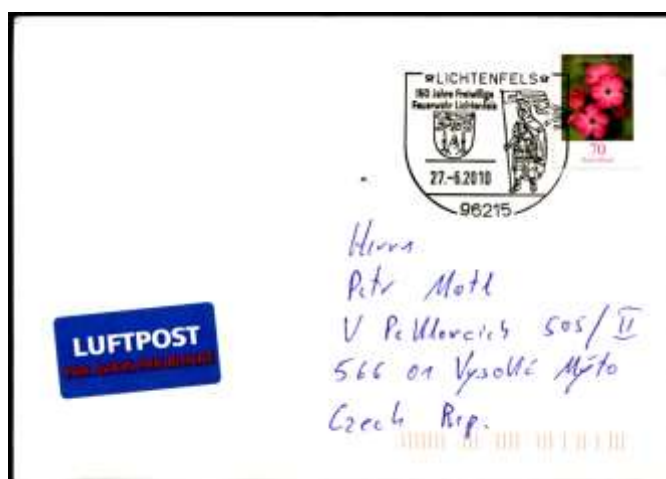 LICHTENFELS
150 Jahre Freiwillige
Feuerwehr Lichtenfels
27.-6.2010
96215
70
Herrn
Petr Motl
V Peklovcích 505/II
566 01 Vysoké Mýto
Czech Rep.
LUFTPOST